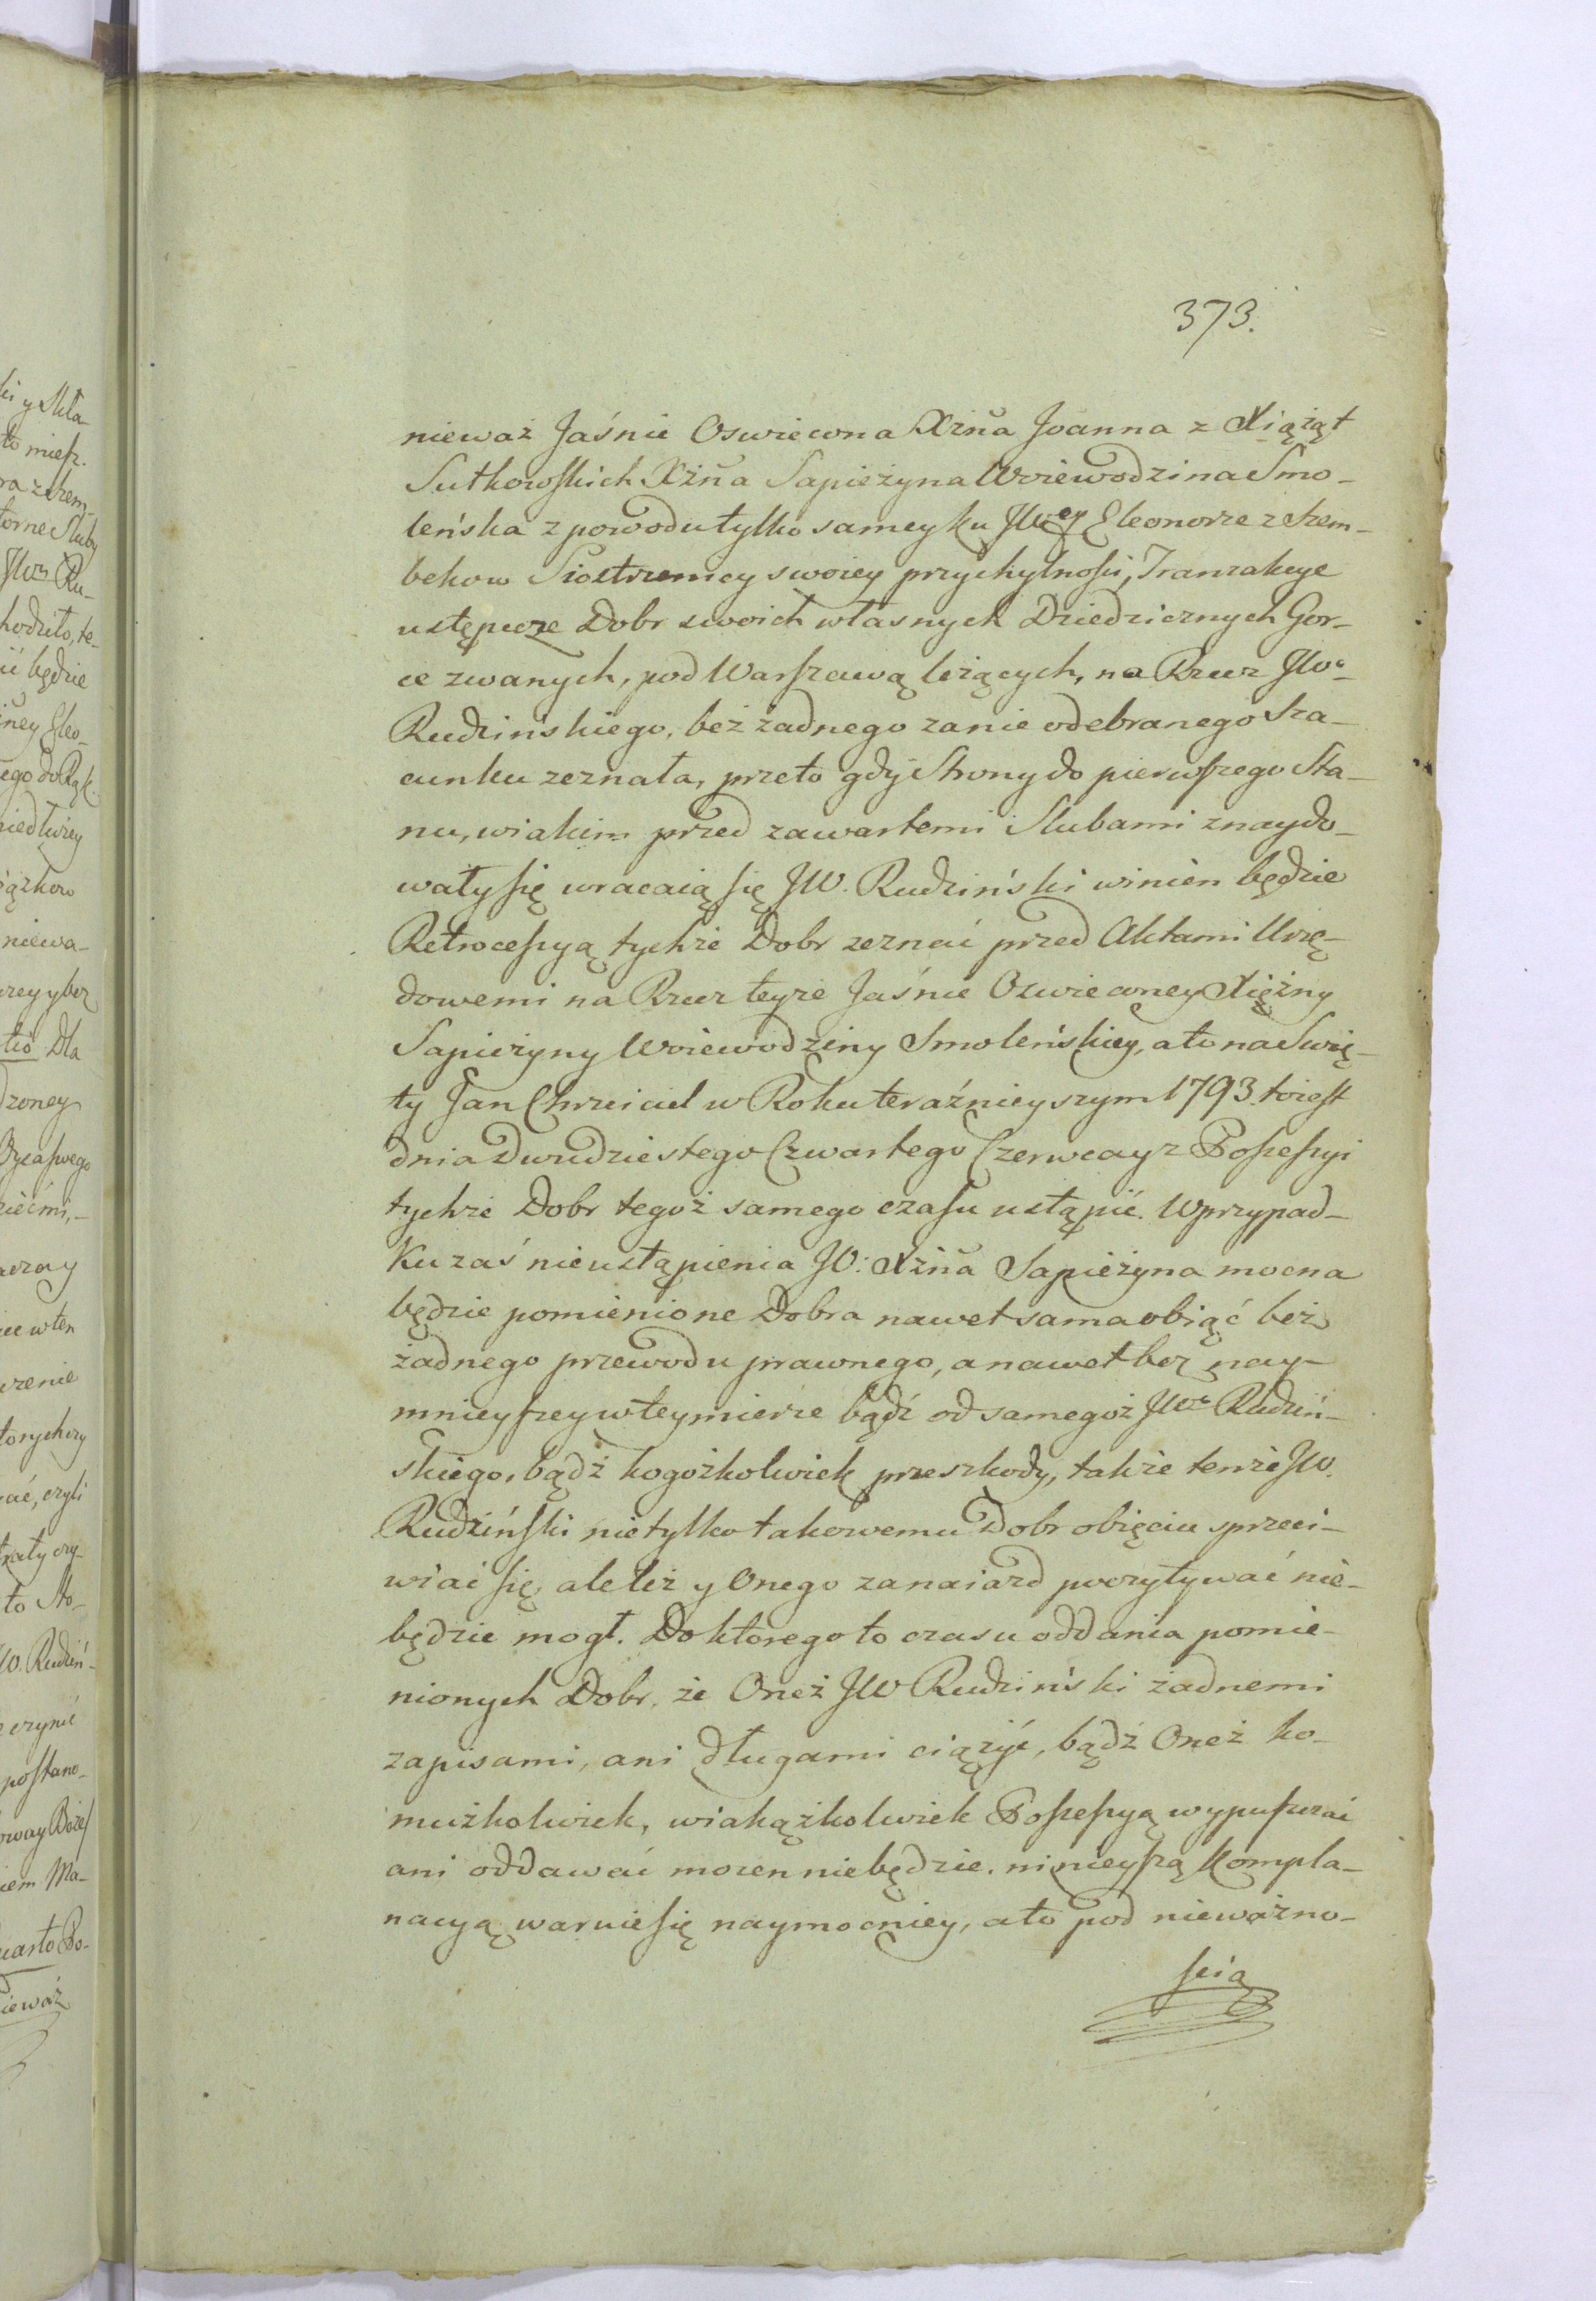 373.
nieważ Jaśnie Oswiecona Xżña Joanna z Xiążąt
Sułkowskich Xżña Sapieżyna Woiewodzina Smo-
leńska z powodu tylko samey ku JW:ey Eleonorze z Szem-
bekow Siostrzenicy swoiey przychylności, Tranzakcye
ustępcze Dobr swoich własnych Dziedzicznych Gor-
ce zwanych, pod Warszawą leżących, na Rzecz JWo
Rudzinskiego, bez żadnego za nie odebranego Sza-
cunku zeznała, przeto gdy Strony do pierwszego Sta-
nu, w iakim przed zawartemi Slubami znaydo-
wały się wracaią się JW. Rudziński winien będzie
Retrocessyą tychże Dobr zeznać przed Aktami Urzę-
dowemi na Rzecz teyże Jaśnie Oswieconey Xiężny
Sapieżyny Woiewodziny Smoleńskiey, a to na Swię-
ty Jan Chrzciciel w Roku teraźnieyszym 1793. toiest
dnia Dwudziestego Czwartego Czerwca y z Possessyi
tychże Dobr tegoż samego czasu ustąpić. W przypad-
ku zaś nieustąpienia JO: Xżña Sapieżyna mocna
będzie pomienione Dobra nawet sama obiąć bez
żadnego przewodu prawnego, a nawet bez nay-
mnieyszey w teymierze bądź od samegoż JWo Rudziń-
skiego, bądź kogożkolwiek przeszkody, także tenże JW.
Rudziński nietylko takowemu Dobr obięciu sprzeci-
wiać się, ale też y Onego za naiazd poczytywać nie-
będzie mogł. Do ktorego to czasu oddania pomie-
nionych Dobr, że Oneż JW Rudziński żadnemi
zapisami, ani długami ciążyć, bądź Oneż ko-
mużkolwiek, w iakążkolwiek Possessyą wypuszczać
ani oddawać mocen niebędzie, ninieyszą Kompla-
nacyą waruie się naymocniey, a to pod nieważno-
scią